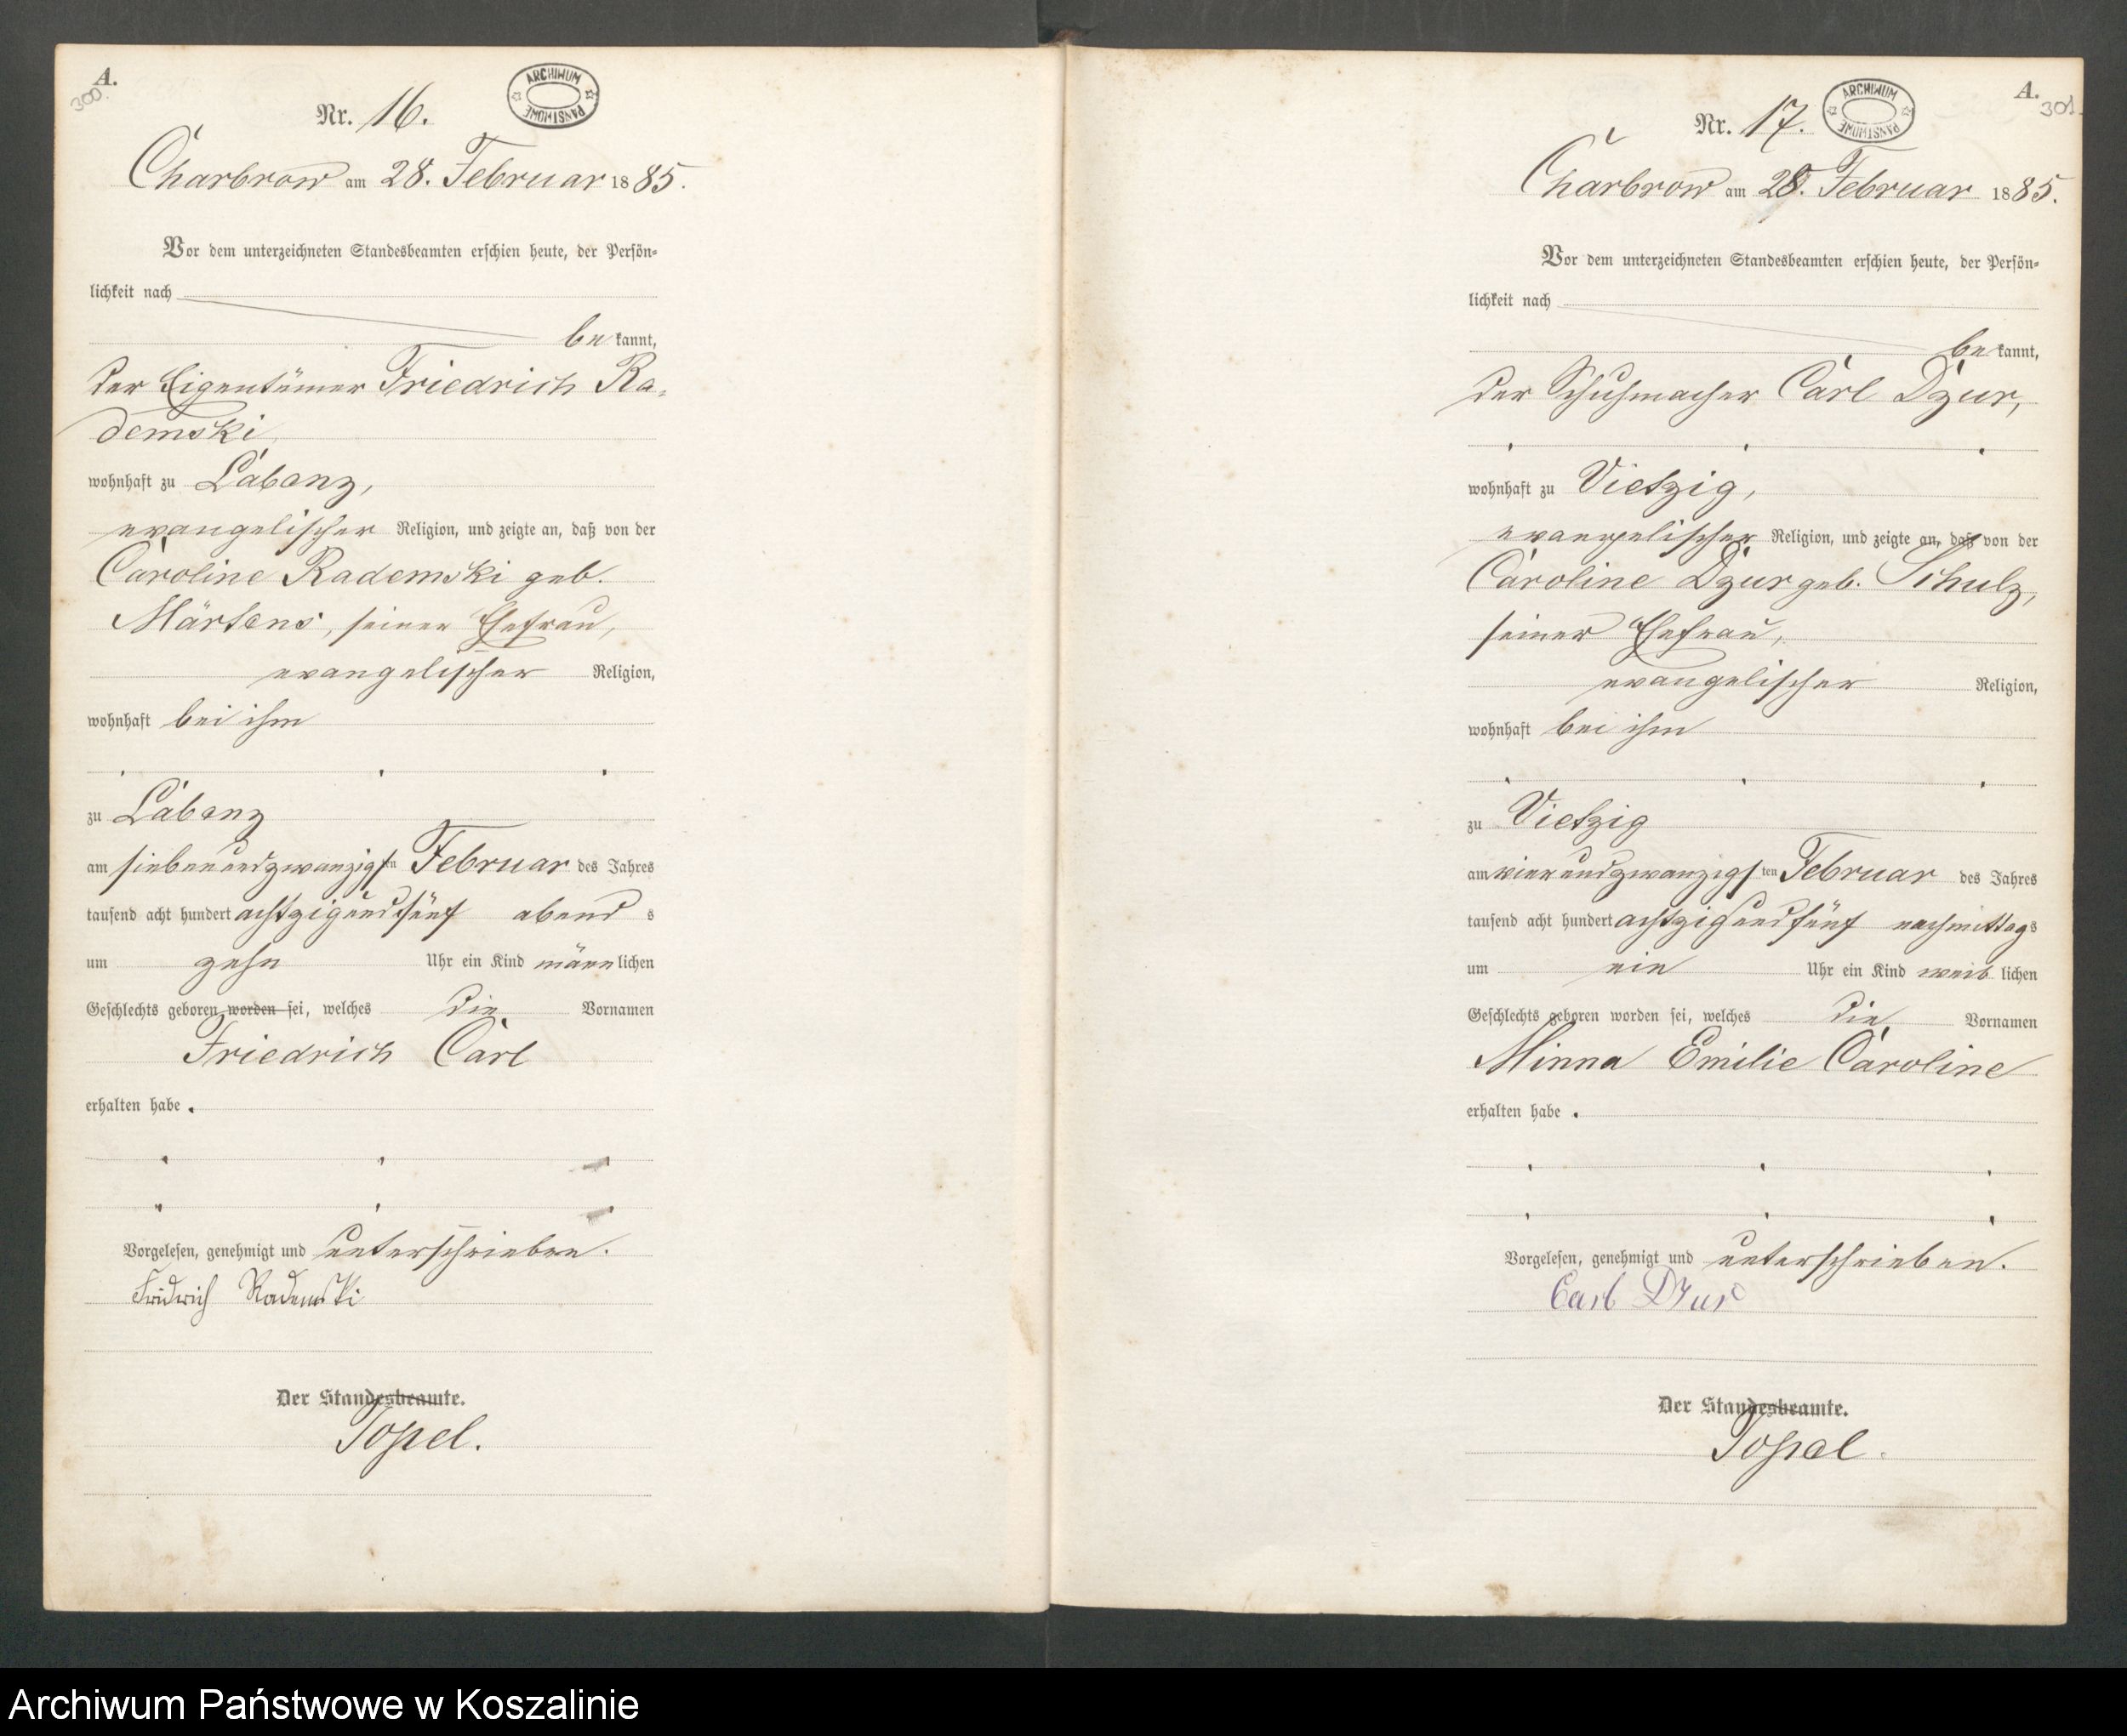 A.
300.
Nr. 16.
ARCHIWUM PAŃSTWOWE
Charbrow am 28. Februar 1885.
Vor dem unterzeichneten Standesbeamten erschien heute, der Persön-
lichkeit nach
be kannt,
der Eigentümer Friedrich Ra-
demski,
wohnhaft zu Labenz,
evangelischer Religion, und zeigte an, daß von der
Caroline Rademski geb.
Märtens, seiner Ehefrau,
evangelischer Religion,
wohnhaft bei ihm
zu Labenz
am siebenundzwanzigsten Februar des Jahres
tausend acht hundert achtzigundfünf abend s
um zehn Uhr ein Kind männlichen
Geschlechts geboren worden sei, welches die Vornamen
Friedrich Carl
erhalten habe.
Vorgelesen, genehmigt und unterschrieben.
Fridrich Rademski
Der Standesbeamte.
Topel.
A.
301.
Nr. 17.
ARCHIWUM PAŃSTWOWE
Charbrow am 28. Februar 1885.
Vor dem unterzeichneten Standesbeamten erschien heute, der Persön-
lichkeit nach
be kannt,
der Schuhmacher Carl Dzur,
wohnhaft zu Vietzig,
evangelischer Religion, und zeigte an, daß von der
Caroline Dzur geb. Schulz,
seiner Ehefrau,
evangelischer Religion,
wohnhaft bei ihm
zu Vietzig
am vierundzwanzigsten Februar des Jahres
tausend acht hundert achtzigundfünf nachmittags
um ein Uhr ein Kind weib lichen
Geschlechts geboren worden sei, welches die Vornamen
Minna Emilie Caroline
erhalten habe.
Vorgelesen, genehmigt und unterschrieben.
Carl Dzur
Der Standesbeamte.
Topel.
Archiwum Państwowe w Koszalinie